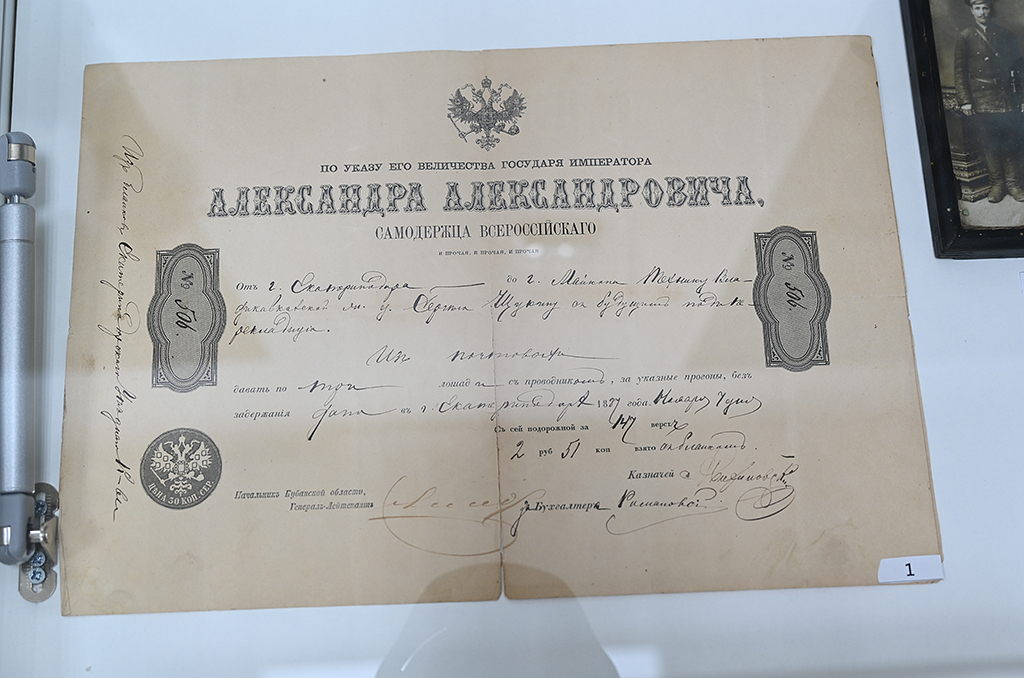 ПО УКАЗУ ЕГО ВЕЛИЧЕСТВА ГОСУДАРЯ ИМПЕРАТОРА
АЛЕКСАНДРА АЛЕКСАНДРОВИЧА,
САМОДЕРЖЦА ВСЕРОССІЙСКАГО
И ПРОЧАЯ, И ПРОЧАЯ, И ПРОЧАЯ
№ 506.
№ 506.
Отъ г. Екатеринодара до г. Майкопа Технику Вла-
дикавказской ж. д. Сергѣю Щукину съ будущимъ
Изъ почтовыхъ
давать по три лошади съ проводникомъ, за указные прогоны, безъ
задержанія. Дана въ г. Екатеринодарѣ 1887 года.
Съ сей подорожной за 147 верстъ
2 руб 51 коп взято
Казначей
Бухгалтеръ
Начальникъ Кубанской области,
Генералъ-Лейтенантъ
ЦѢНА 30 КОП. СЕР.
1